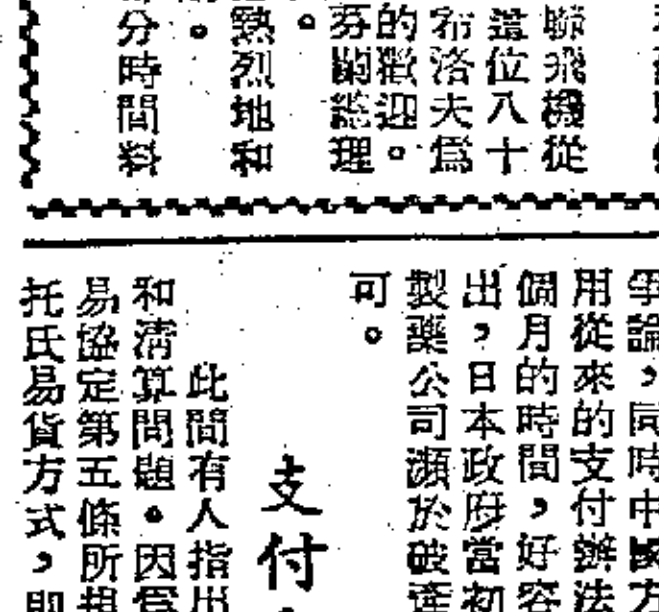 聯飛機從
這位八十
布洛夫爲
的歡迎。
芬蘭總理
。
熱烈地和
。
分時間料
爭論，同時中國方
用從來的支付辦法
個月的時間，好容
出，日本政府當初
製藥公司瀕於破產
可。
支付
此間有人指出
和清算問題。因爲
易協定第五條所提
托氏易貨方式，即